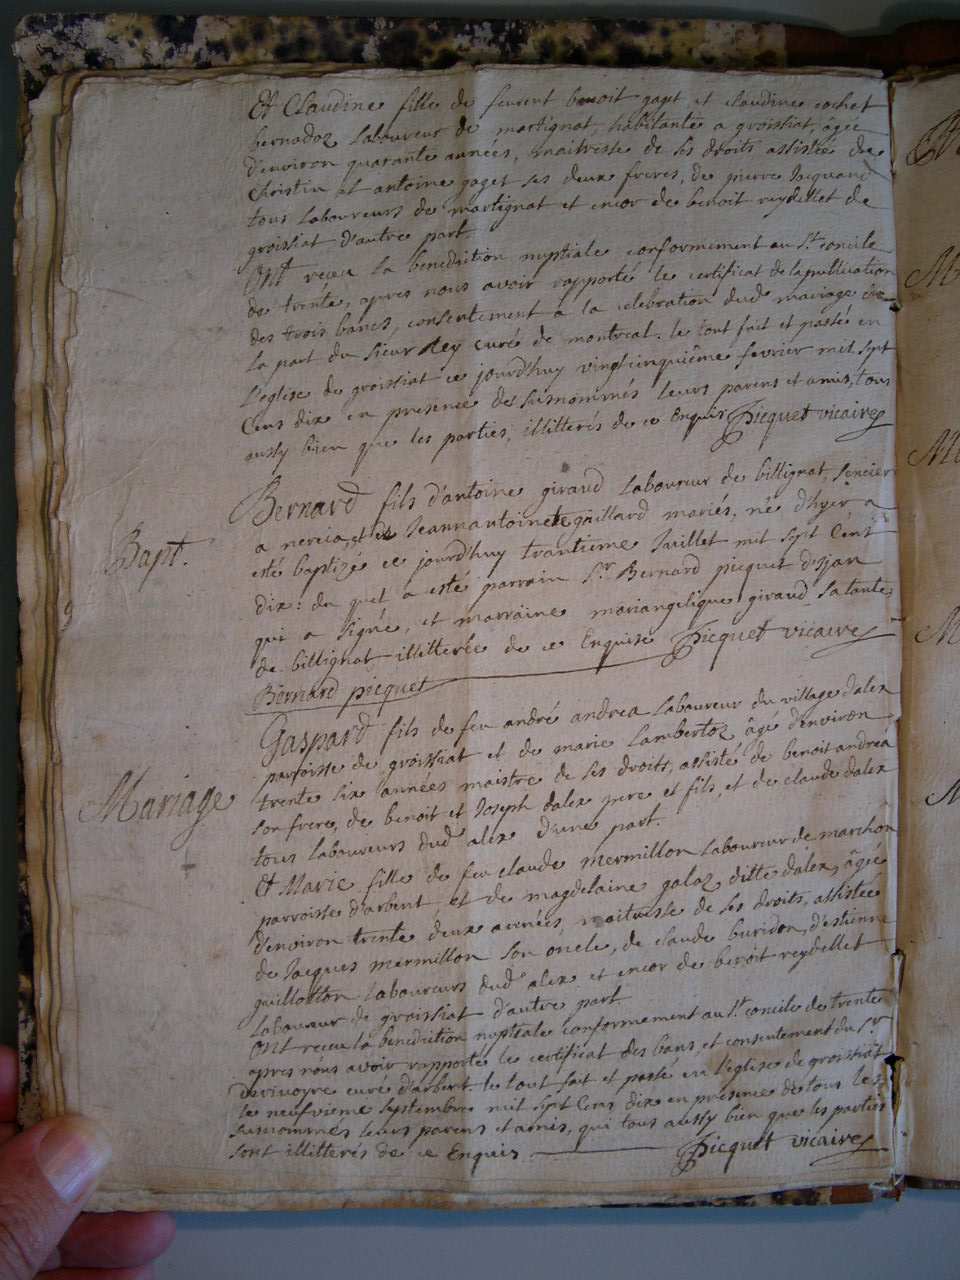 Et Claudine fille de feurent benoit gaget, et claudine cochet
bernadoz Laboureur de martignat, habitante a groissiat, âgée
d'environ quarante années, maitresse de ses droits assistée de
Christin et antoine gaget ses deux freres, de pierre Jacquand
tous Laboureurs de martignat et encor de benoit reydellet de
groissiat d'autre part
Ont receu La benediction nuptiale conformement au St concile
de trente, apres nous avoir rapporté le certificat de la publication
des trois bancs, consentement à la celebration dud mariage de
La part du Sieur Rey curé de montreal. le tout fait et passé en
L'eglise de groissiat ce jourd'huy vingtcinquiême fevrier mil sept
Cens dix en presence des susnommés leurs parens et amis, tous
aussy bien que les parties, illitterés de ce Enquis Picquet vicaire
Bapt.
Bernard fils d'antoine giraud Laboureur de billignat,
a nercia, et de Jeannantoinete gaillard mariés, né d'hyer, a
esté baptizé ce jourd'huy trantieme Juillet mil sept Cent
dix: du quel a esté parrain Sr Bernard picquet d'ojan
qui a signé, et marraine mariangelique giraud sa tante
de billignat illitterée de ce Enquise Picquet vicaire
Bernard picquet
Mariage
Gaspard fils de feu andré andrea Laboureur du village d'alex
parroisse de groissiat et de marie Lambertoz âgé d'environ
trente six années maistre de ses droits, assisté de benoit andrea
son frere, de benoit et Joseph d'alex pere et fils, et de claude d'alex
tous Laboureurs dud alex d'une part.
Et Marie fille de feu claude mermillon Laboureur de marchon
parroisse d'arbent, et de magdelaine galaz ditte d'alex, âgée
d'environ trente deux années maitresse de ses droits, assistée
de Jacques mermillon son oncle, de claude buridon, d'estienne
guillotton Laboureurs dud alex et encor de benoit reydellet
Laboureur de groissiat d'autre part
Ont receu la benediction nuptiale conformement au St concile de trente
apres nous avoir rapporté le certificat des bans, et consentement du Sr
curé d'arbent le tout fait et passé en L'eglise de groissiat
le neufvieme septembre mil sept Cens dix en presence de tous les
susnommés leurs parens et amis, qui tous aussy bien que les parties
sont illitterés de ce Enquis Picquet vicaire